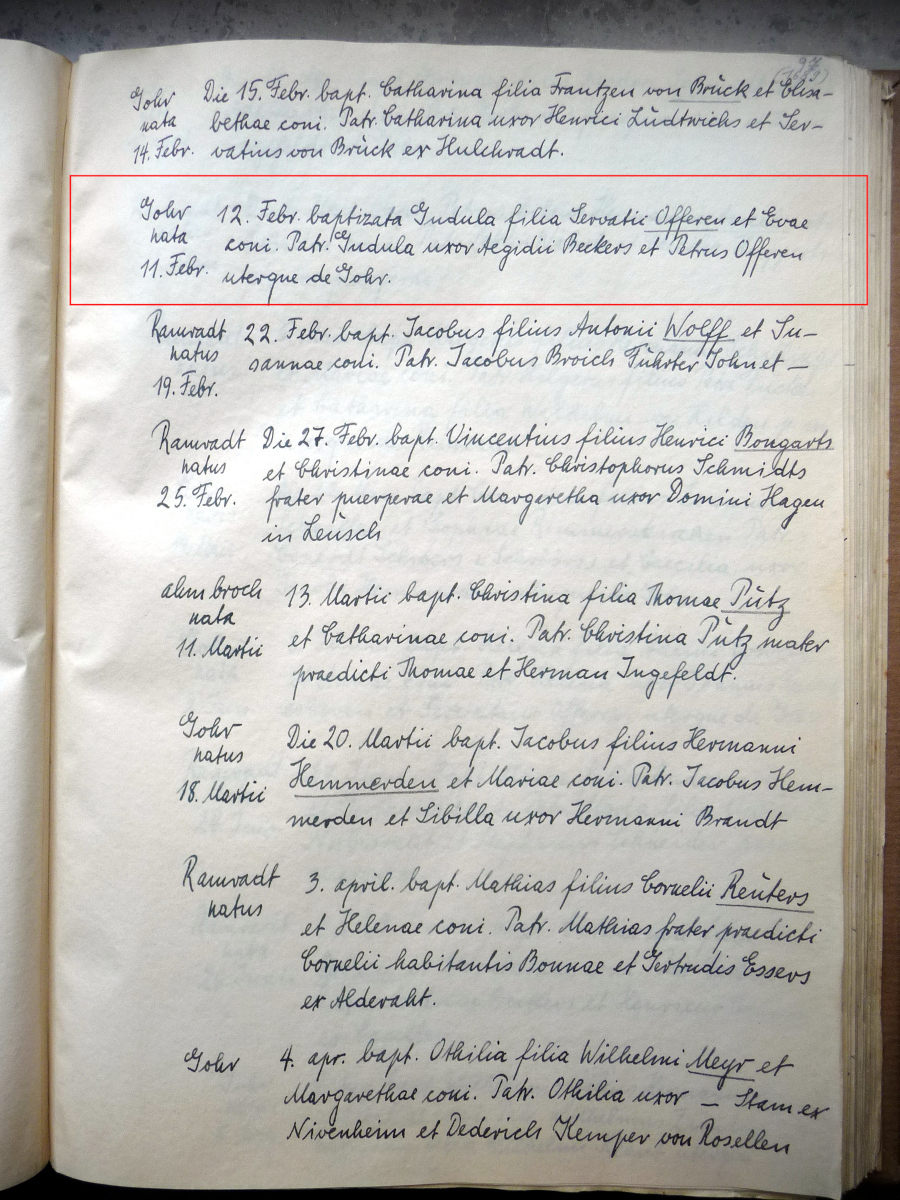 Gohr
nata
14. Febr.
Die 15. Febr. bapt. Catharina filia Frantzen von Brück et Elisa-
bethae coni. Patr. Catharina uxor Henrici Lüdtwichs et Ser-
vatius von Brück ex Hulchradt.
Gohr
nata
11. Febr.
12. Febr. baptizata Gudula filia Servatii Offeren et Evae
coni. Patr. Gudula uxor Aegidii Beckers et Petrus Offeren
uterque de Gohr.
Ramradt
natus
19. Febr.
22. Febr. bapt. Jacobus filius Antonii Wolff et Su-
sannae coni. Patr. Jacobus Broich Führter Sohn et —
Ramradt
natus
25. Febr.
Die 27. Febr. bapt. Vincentius filius Henrici Bongarts
et Christinae coni. Patr. Christophorus Schmidts
frater puerperae et Margaretha uxor Domini Hagen
in Leüsch
ahm broch
nata
11. Martii
13. Martii bapt. Christina filia Thomae Pütz
et Catharinae coni. Patr. Christina Pütz mater
praedicti Thomae et Herman Ingefeldt.
Gohr
natus
18. Martii
Die 20. Martii bapt. Jacobus filius Hermanni
Hemmerden et Mariae coni. Patr. Jacobus Hem-
merden et Sibilla uxor Hermanni Brandt
Ramradt
natus
3. april. bapt. Mathias filius Cornelii Reüters
et Helenae coni. Patr. Mathias frater praedicti
Cornelii habitantis Bonnae et Gertrudis Essers
ex Alderaht.
Gohr
4. apr. bapt. Othilia filia Wilhelmi Meyr et
Margarethae coni. Patr. Othilia uxor — Stam ex
Nivenheim et Dederich Kemper von Rosellen